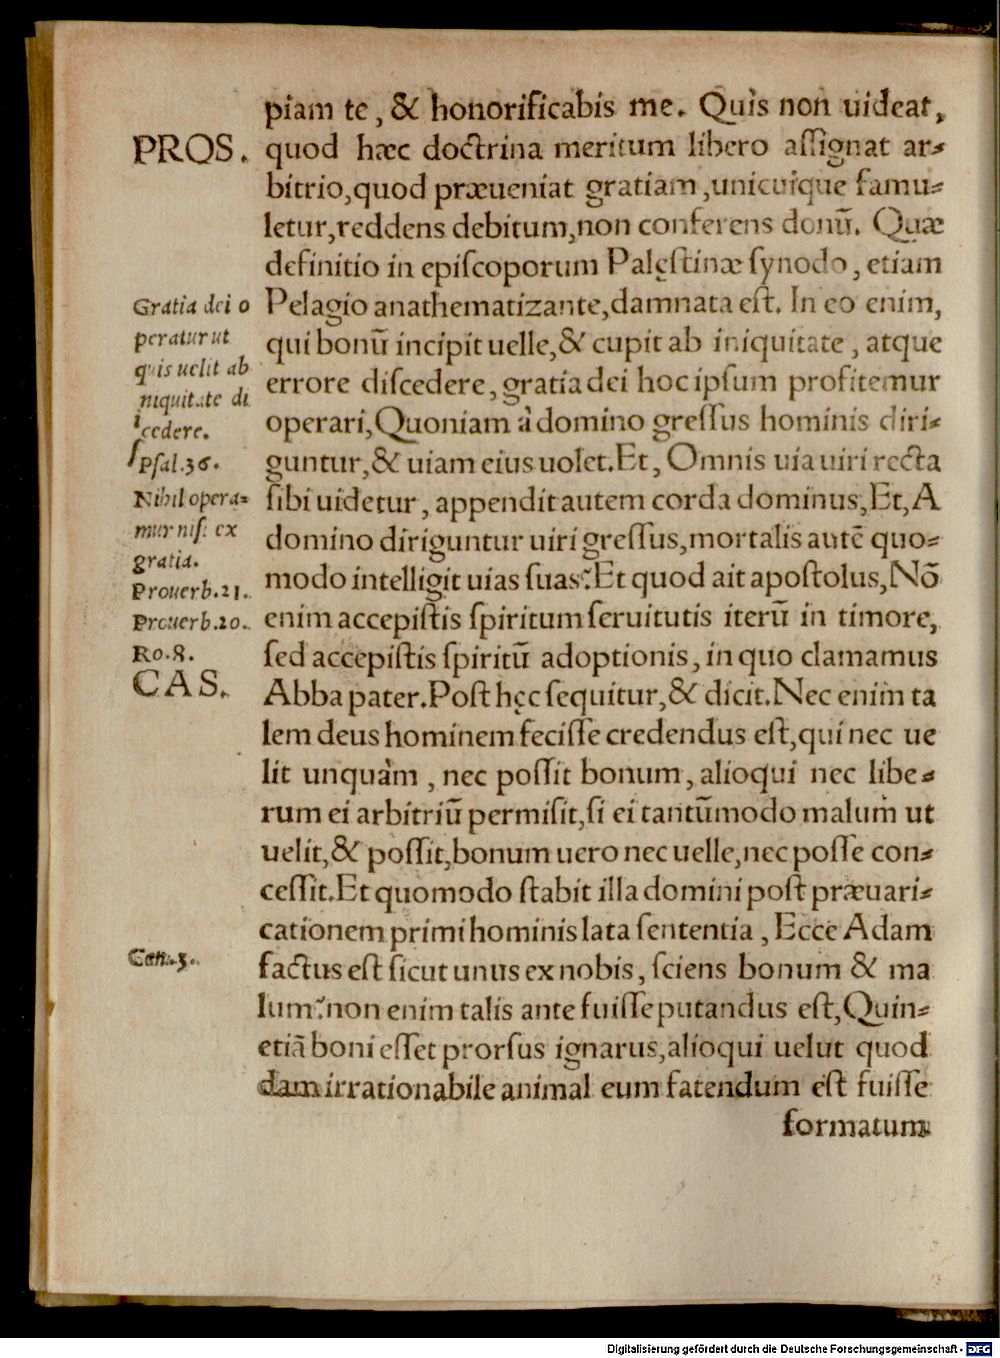 piam te, & honorificabis me. Quis non uideat,
PROS.
quod hæc doctrina meritum libero aſſignat ar-
bitrio, quod præueniat gratiam, unicuique famu-
letur, reddens debitum, non conferens donū. Quæ
definitio in epiſcoporum Palęſtinæ ſynodo, etiam
Pelagio anathematizante, damnata eſt. In eo enim,
qui bonū incipit uelle, & cupit ab iniquitate, atque
errore diſcedere, gratia dei hoc ipſum profitemur
operari, Quoniam à domino greſſus hominis diri-
guntur, & uiam eius uolet. Et, Omnis uia uiri recta
ſibi uidetur, appendit autem corda dominus, Et, A
domino diriguntur uiri greſſus, mortalis autē quo-
modo intelligit uias ſuas? Et quod ait apoſtolus, Nō
enim accepiſtis ſpiritum ſeruitutis iterū in timore,
ſed accepiſtis ſpiritū adoptionis, in quo clamamus
Abba pater. Poſt hęc ſequitur, & dicit. Nec enim ta
lem deus hominem feciſſe credendus eſt, qui nec ue
lit unquàm, nec poſſit bonum, alioqui nec libe-
rum ei arbitriū permiſit, ſi ei tantūmodo malum ut
uelit, & poſſit, bonum uero nec uelle, nec poſſe con-
ceſſit. Et quomodo ſtabit illa domini poſt præuari-
cationem primi hominis lata ſententia, Ecce Adam
factus eſt ſicut unus ex nobis, ſciens bonum & ma
lum? non enim talis ante fuiſſe putandus eſt, Quin-
etiā boni eſſet prorſus ignarus, alioqui uelut quod
dam irrationabile animal eum fatendum eſt fuiſſe
formatum
Gratia dei o
peratur ut
quis uelit ab
niquitate di
i
cedere.
ſ
Pſal.36.
Nihil opera-
mur niſi ex
gratia.
Prouerb.21.
Prouerb.20.
Ro.8.
CAS.
Digitalisierung gefördert durch die Deutsche Forschungsgemeinschaft - DFG